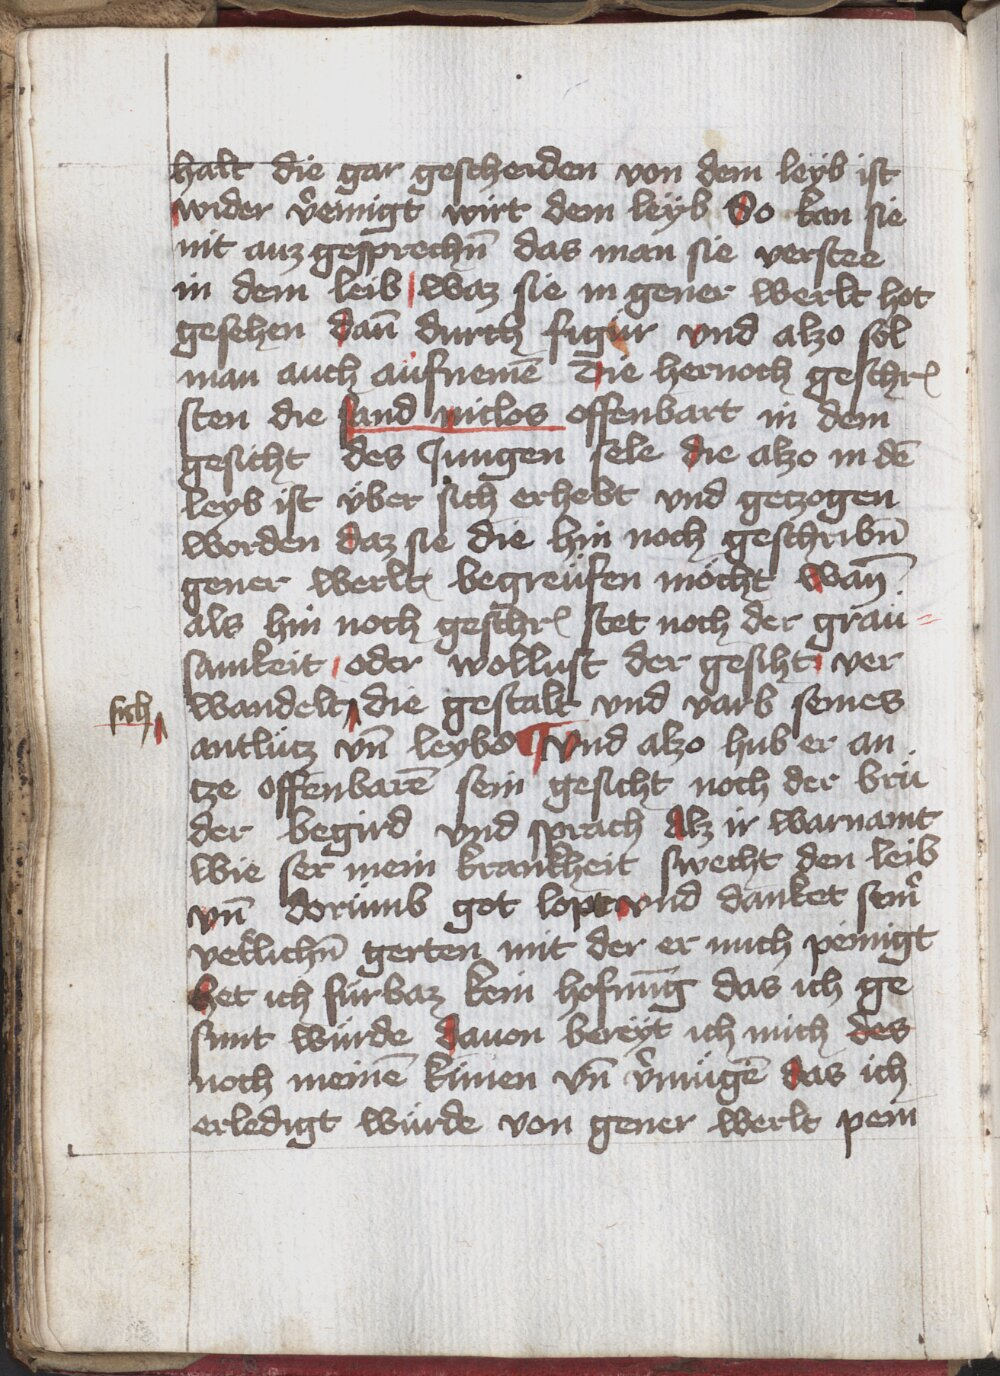 halt die gar gescheiden von dem leyb ist
wider v̾einigt wirt dem leyb So kan sie
nit auz gesprechn̄ das man sie verstee
in dem leib waz sie in gener werlt hot
gesehen dan̄ durch figur vnd alzo sol
man auch aufnemē Die hernoch geschr͛
sten die sand niclos offenbart in dem
gesicht des Jungen sele die alzo in dē
leyb ist über sich erhebt vnd getzogen
worden daz sie die hin noch geschribn̄
gener werlt begreüfen möcht wan̄
als hin noch geschr͛ stet noch der graü=
samkeit oder wollust der gesiht ver
sich wandelt die gestalt vnd varb seines
antlütz vn̄ leybs Vnd alzo hub er an
tze offenbarē sein gesicht noch der brü
der begird vnd sprach Alz ir warnamt
wie ser mein krankheit swecht den leib
vn̄ dorümb got lopt vnd danket sein̾
veťlichn̄ gerten mit der er mich peinigt
Het ich fürbaz kein hofnūg das ich ge
sunt würde Dauon bereyt ich mich des
noch meinē künen vn̄ v̾mügē das ich
erledigt würde von gener werlt pein